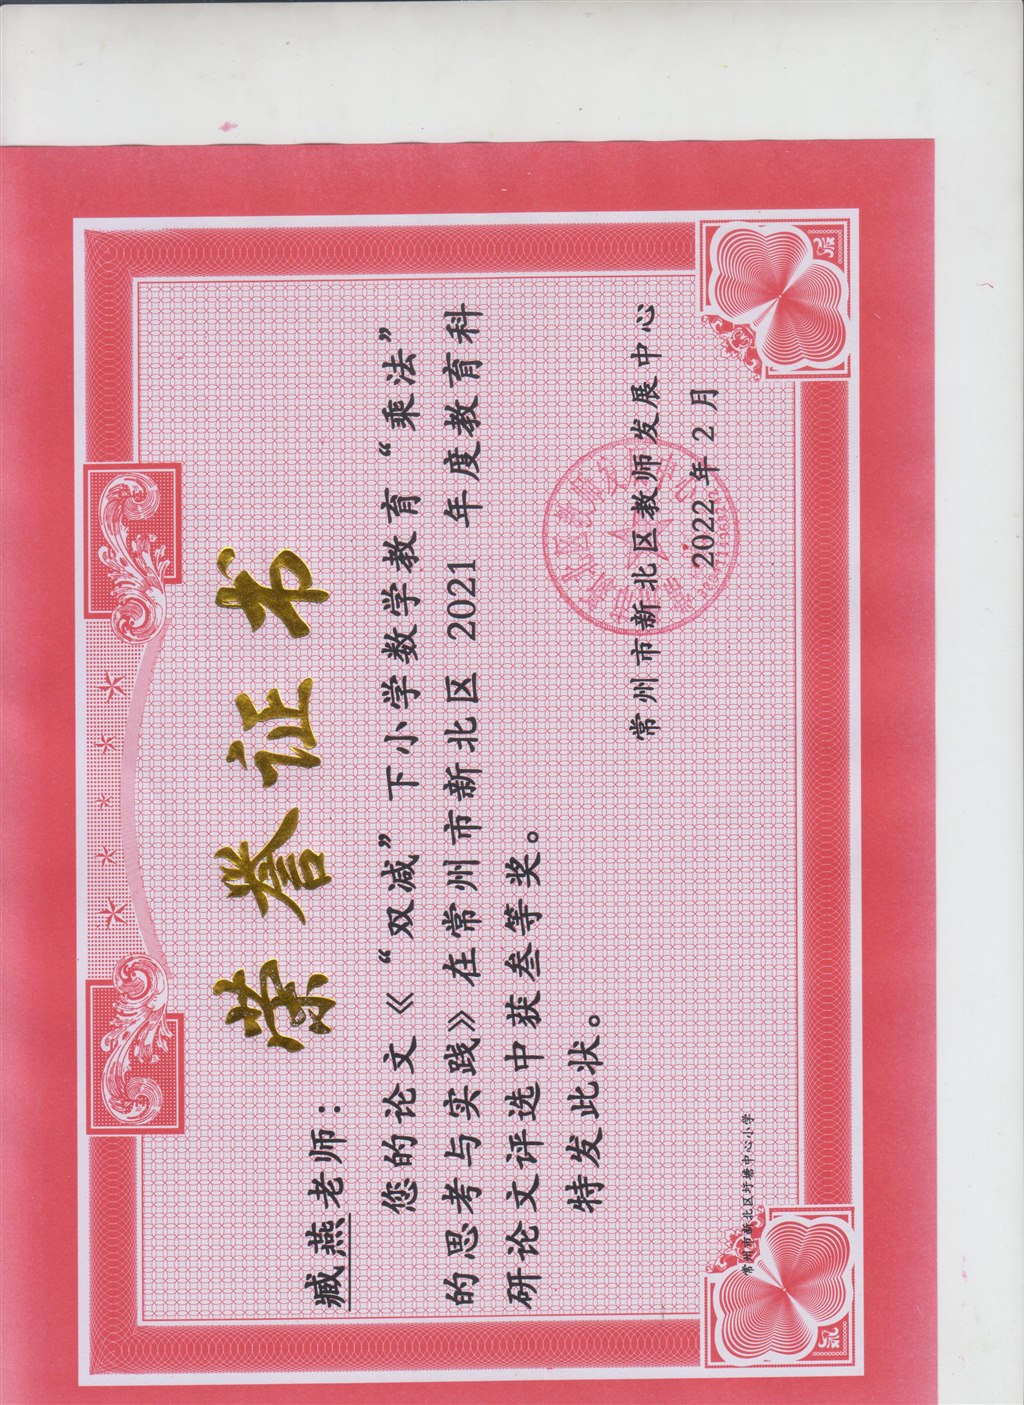 荣誉证书
臧燕老师：
您的论文《“双减”下小学数学教育“乘法”
的思考与实践》在常州市新北区 2021 年度教育科
研论文评选中获叁等奖。
特发此状。
常州市新北区教师发展中心
2022 年 2 月
常州市新北区圩塘中心小学